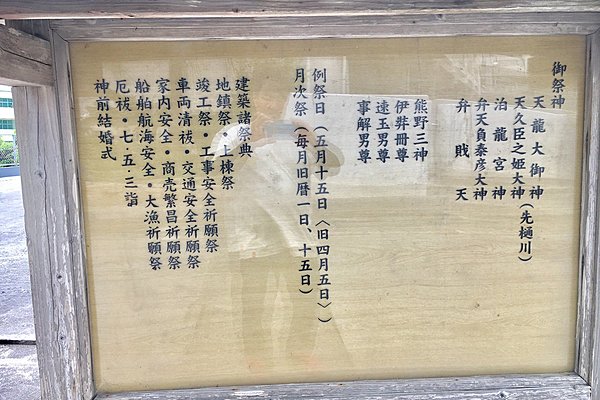 御祭神
天龍大御神
天久臣之姫大神(先樋川)
泊龍宮神
弁天負泰彦大神
弁賎天
熊野三神
伊弉冊尊
速玉男尊
事解男尊
例祭日(五月十五日〈旧四月五日〉)
月次祭(毎月旧暦一日、十五日)
建築諸祭典
地鎮祭・上棟祭
竣工祭・工事安全祈願祭
車両清祓・交通安全祈願祭
家内安全・商売繁昌祈願祭
船舶航海安全・大漁祈願祭
厄祓・七・五・三詣
神前結婚式